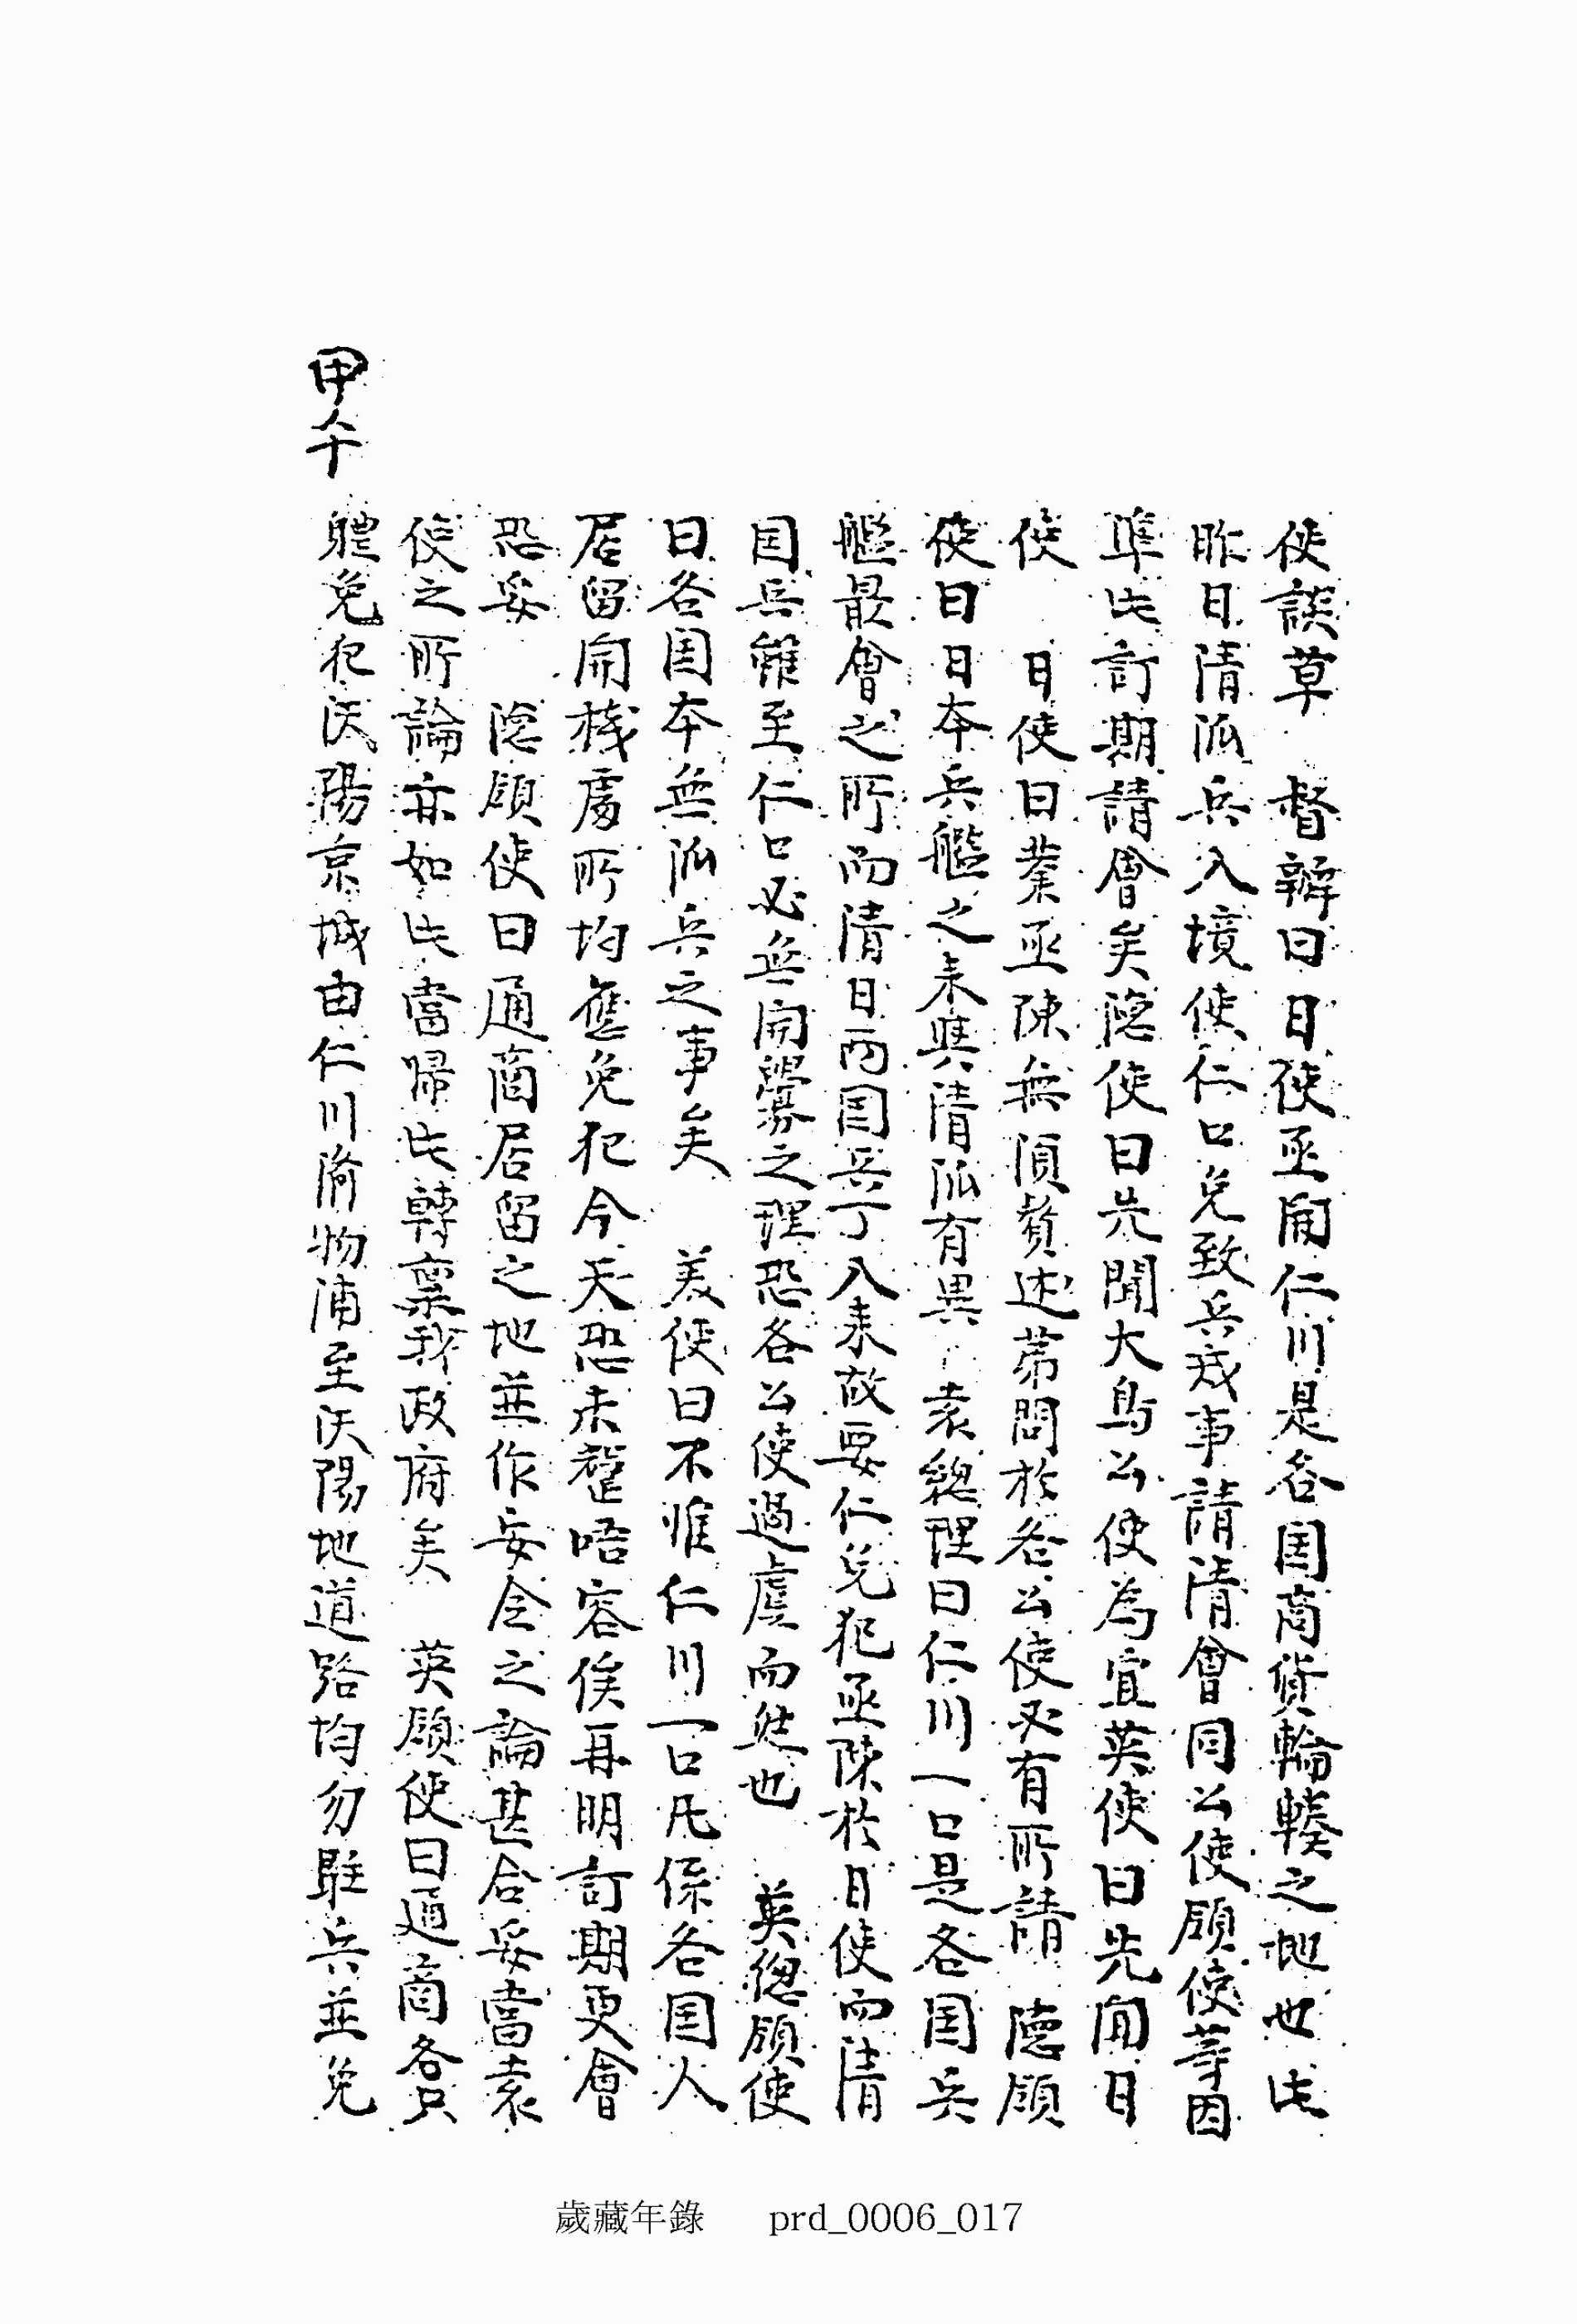 使談草 督辦曰日使函開仁川是各国商貨輪輳之地也此
昨日清派兵入境使仁口免致兵戎事請清會同公使領使等因
準此訂期請會矣德使曰先聞大鳥公使為宜英使曰先聞日
使 日使曰業函陳無須贅述第問於各公使必有所請 德領
使曰日本兵艦之來與清派有異 袁總理曰仁川一口是各国兵
艦最會之所而清日両国兵丁入来故要仁免犯函陳於日使而清
国兵雖至仁口必無開釁之理恐各公使過慮而然也 英總領使
曰各国本無派兵之事矣 美使曰不惟仁川一口凡係各国人
居留開棧處所均應免犯今天恐未整唔容俟再明訂期更會
恐妥 德領使曰通商居留之地並作妥全之論甚合妥當袁
使之所論亦如此當歸此轉稟我政府矣 英領使曰通商各只
難免犯漢陽京城由仁川濟物浦至漢陽地道路均勿駐兵並免
甲午